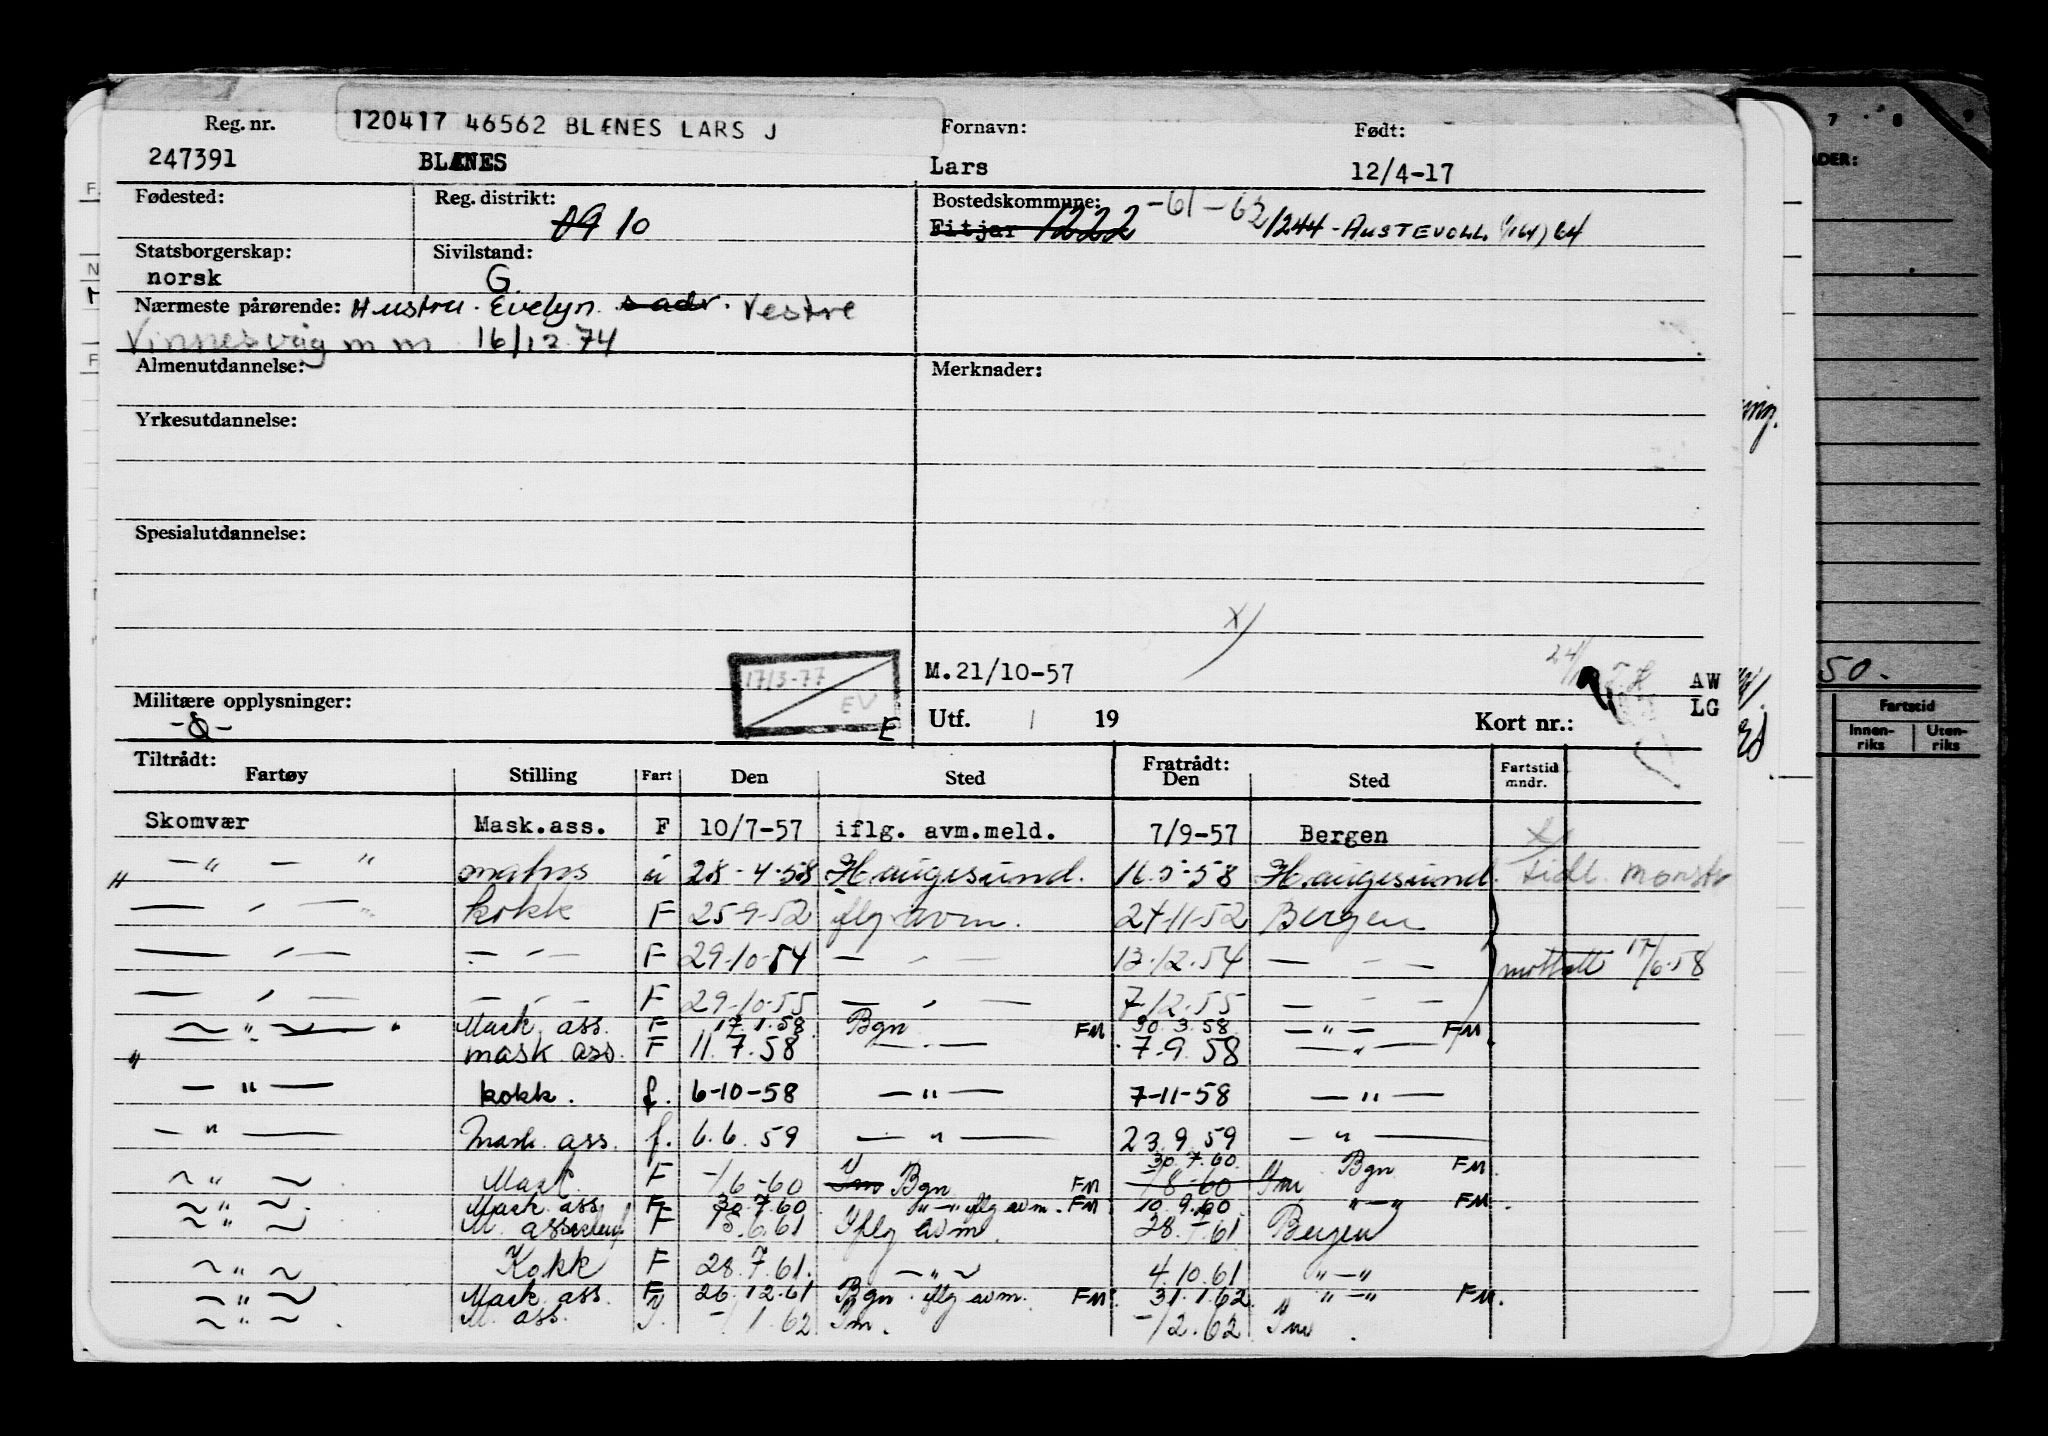 Reg. nr. 120417 46562 BLÆNES LARS J Fornavn: Født:
247391 BLÆNES Lars 12/4-17
Fødested: Reg. distrikt: Bostedskommune: -61-62
09 10 Fitjar 1222 1244-AUSTEVOLL 64
Statsborgerskap: Sivilstand:
norsk G.
Nærmeste pårørende: Hustru. Evelyn. s adr. Vestre
Vinnesvåg m m 16/12 74
Almenutdannelse: Merknader:
Yrkesutdannelse:
Spesialutdannelse:
x)
M.21/10-57 AW
17/3-77 EV
Militære opplysninger: E Utf. / 19 Kort nr.: LG
-Ö-
Tiltrådt: Fratrådt:
Fartøy Stilling Fart Den Sted Den Sted Fartstid mndr.
Skomvær Mask.ass. F 10/7-57 iflg. avm.meld. 7/9-57 Bergen x)
" — " — " matros u 28-4-58 Haugesund. 16.5-58 Haugesund. tidl. mønstr
— " — " kokk F 25-9-52 iflg avm. 24-11-52 Bergen
— " — — " — F 29-10-54 — " — 13.12.54 — " — mottatt 17/6-58
— " — — " — F 29-10-55 — " — 7/12-55 — " —
— " — " Mask. ass. F 17.1.58 Bgn FM 30.3.58 — " — FM.
" — mask ass. F 11.7.58 — " — 7.9.58 — " —
— " — kokk. f. 6-10-58 — " — 7-11-58 — " —
— " — Mask. ass. f. 6.6.59 — " — 23.9.59 — " —
30.7.60 Bgn FM.
~ " ~ Mask F -/6-60 Im Bgn FM -/8-60 Im
~ " ~ Mask ass F 30.7.60 " — " iflg avm. FM 10.9.60 " — " FM.
~ " ~ M. assistent F 15.6.61 Iflg avm. 28.7.61 Bergen
~ " ~ Kokk F 28.7.61. ~ " ~ 4.10.61 " — "
~ " ~ Mask. ass. F 26.12.61 Bgn. iflg avm. FM. 31.1.62 " — " FM.
~ " ~ M. ass. -/1.62 Im. -/2.62 Im.
7 8 9
ADER:
50.
Fartstid
Innen-riks Uten-riks